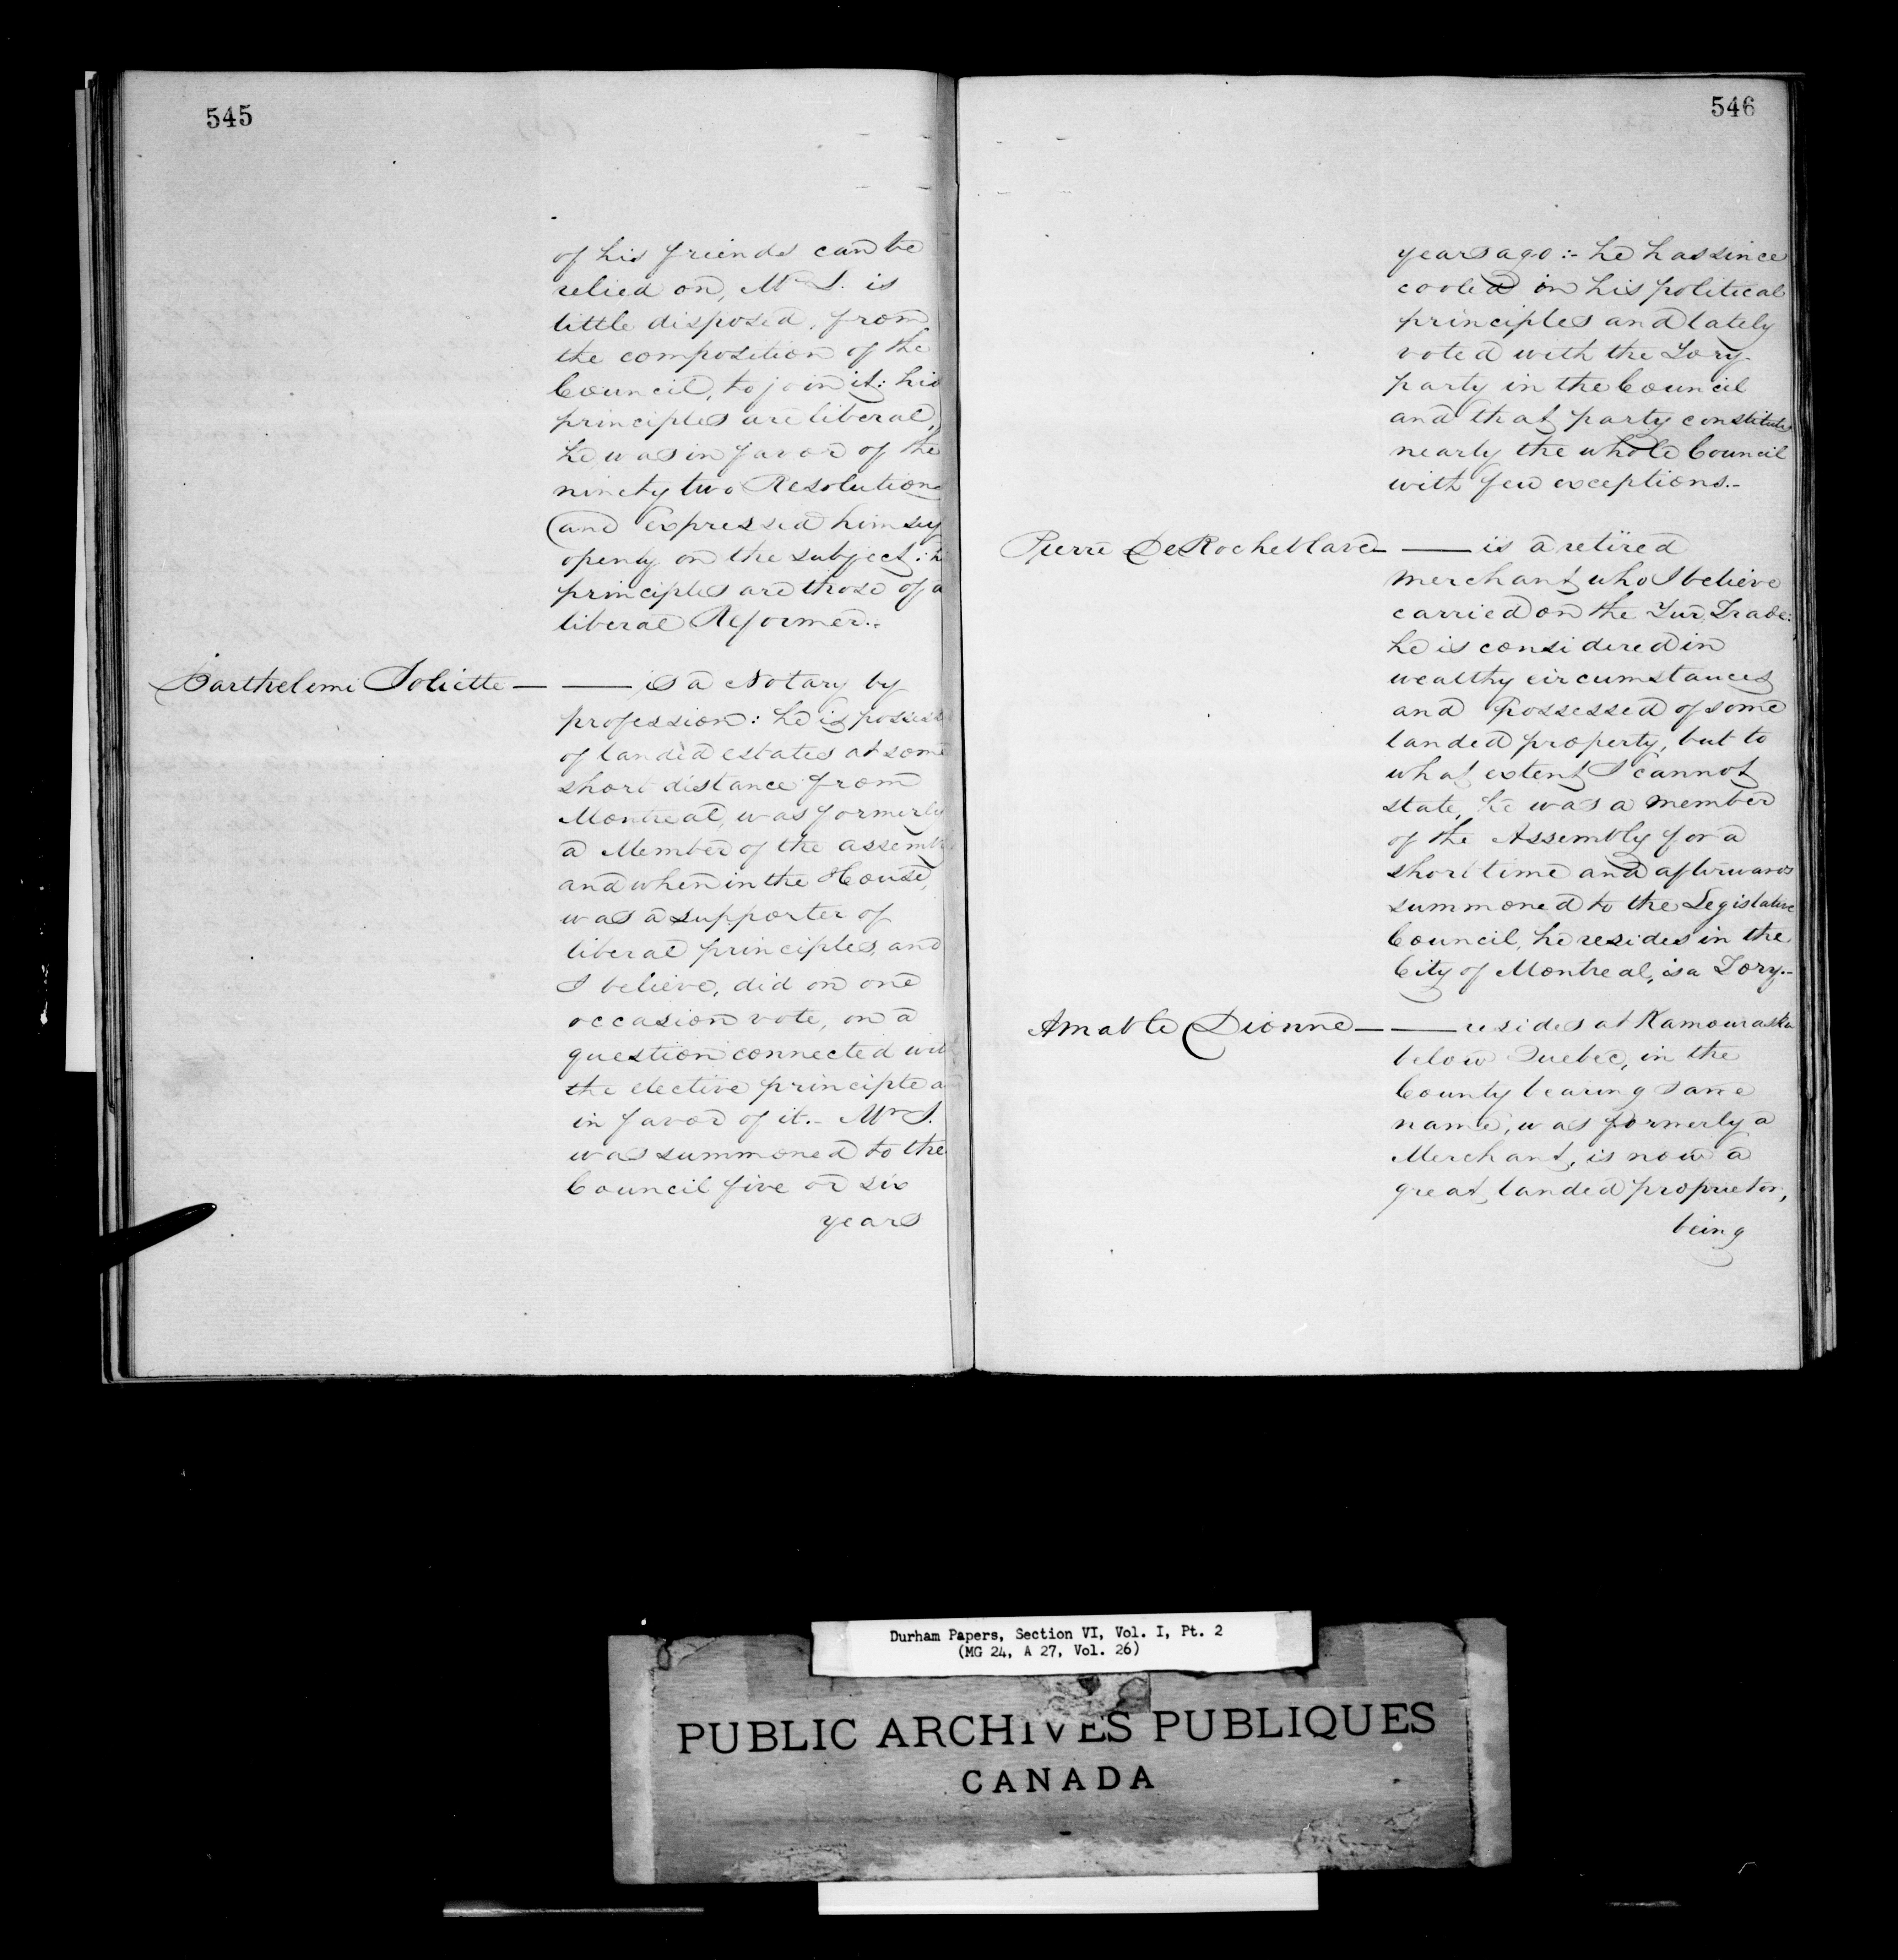 545
of his friends can be
relied on, Mr L. is
little disposed, from
the composition of the
Council, to join it: his
principles are liberal,
he was in favor of the
ninety two Resolutions
and expressed himself
openly on the subject:
principles are those of a
liberal Reformer.-
Barthelemi Joliette — — is a Notary by
profession: he is possess
of landed estates at some
short distance from
Montreal, was formerly
a Member of the assemb
and when in the House,
was a supporter of
liberal principles, and
I believe, did on one
occasion vote, on a
question connected wit
the elective principle a
in favor of it.- Mr J.
was summoned to the
Council five or six
years
546
years ago:- he has since
cooled in his political
principles and lately
voted with the Tory-
party in the Council
and that party constitutes
nearly the whole Council
with few exceptions.-
Pierre DeRocheblave — — is a retired
merchant who I believe
carried on the Fur Trade:
he is considered in
wealthy circumstances
and possessed of some
landed property, but to
what extent I cannot
state, he was a member
of the Assembly for a
short time and afterwards
summoned to the Legislative
Council, he resides in the
City of Montreal, is a Tory.-
Amable Dionne — — resides at Kamouraska
below Quebec, in the
County bearing same
name, was formerly a
Merchant, is now a
great landed proprietor,
being
Durham Papers, Section VI, Vol. I, Pt. 2
(MG 24, A 27, Vol. 26)
PUBLIC ARCHIVES PUBLIQUES
CANADA